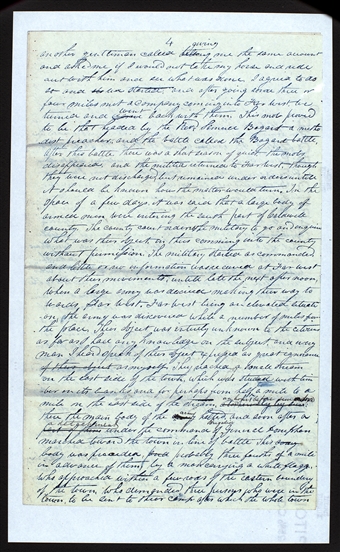 4
another gentleman called giving me the same account
and asked me if I would not take my horse and ride
out with him and see what was done. I agreed to do
so and we started and after going some three or
four miles met a company coming into Far West we
turned and went back with them. This mob proved
to be that headed by the Rev. Samuel Bogart a meth
odist preacher, and the battle called the Bogard battle,
after this battle there was a short season of peace, the mobs
disappeared, and the militia returned to Far West, though
they were not discharged, but remained under orders until
it should be known how the matter would turn. In the
space of a few days, it was said that a large body of
armed men were entering the south part of Caldwell
county. The county court ordered the military to go and enquire
what was their object, in thus coming into the county
without permission. The military started as commanded
and little or no information was received at Far West
about their movements, until late the next afternoon,
when a large army was descried making their way to
wards Far West. Far West being an elevated situati
on, the army was discovered while a number of miles from
the place. Their object was entirely unknown to the citizens
as far as I had any knowledge on the subject, and every
man I heard speak of their object expressed as great ignorance
as myself. They reached a small stream
on the east side of the town, which was studded with tim
ber on its banks, and for perhaps from half a mile to a
mile on the east side of the stream
there the main body of the halted, and soon after a
under the command of General Doniphan
marched toward the town in line of battle. This
body was preceded, probably three fourths of a mile
in advance of them, by a man carrying a white flag,
who approached within a few rods of the eastern boundary
of the town, and demanded three persons, who were in the
town, to be sent to their camp, after which the whole town